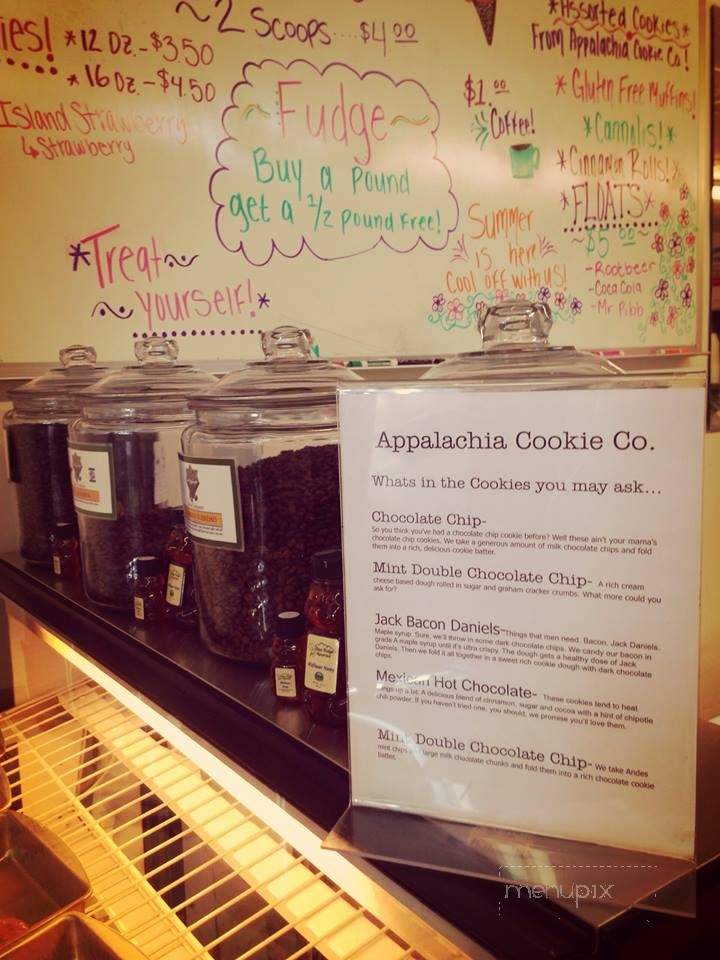 ~2 Scoops....$4.00
ies! *12 oz.-$3.50
*16 oz.-$4.50
Island Strawberry
↳Strawberry
~Fudge~
Buy a pound
get a 1/2 pound free!
*Treat~
~yourself!*
$1.00
Coffee!
Summer
is here
Cool off with us!
*Assorted Cookies*
From Appalachia Cookie Co!
*Gluten Free Muffins!
*Cannolis!*
*Cinnamon Rolls!*
*FLOATS*
~$5.00~
-Rootbeer
-Coca Cola
-Mr Pibb
Appalachia Cookie Co.
Whats in the Cookies you may ask...
Chocolate Chip-
So you think you've had a chocolate chip cookie before? Well these ain't your mama's
chocolate chip cookies. We take a generous amount of milk chocolate chips and fold
them into a rich, delicious cookie batter.
Mint Double Chocolate Chip- A rich cream
cheese based dough rolled in sugar and graham cracker crumbs. What more could you
ask for?
Jack Bacon Daniels-Things that men need. Bacon. Jack Daniels.
Maple syrup. Sure, we'll throw in some dark chocolate chips. We candy our bacon in
grade A maple syrup until it's ultra crispy. The dough gets a healthy dose of Jack
Daniels. Then we fold it all together in a sweet rich cookie dough with dark chocolate
chips.
Mexican Hot Chocolate- These cookies tend to heat
things up a bit. A delicious blend of cinnamon, sugar and cocoa with a hint of chipotle
chili powder. If you haven't tried one, you should, we promise you'll love them.
Mint Double Chocolate Chip- We take Andes
mint chips and large milk chocolate chunks and fold them into a rich chocolate cookie
batter.
menupix